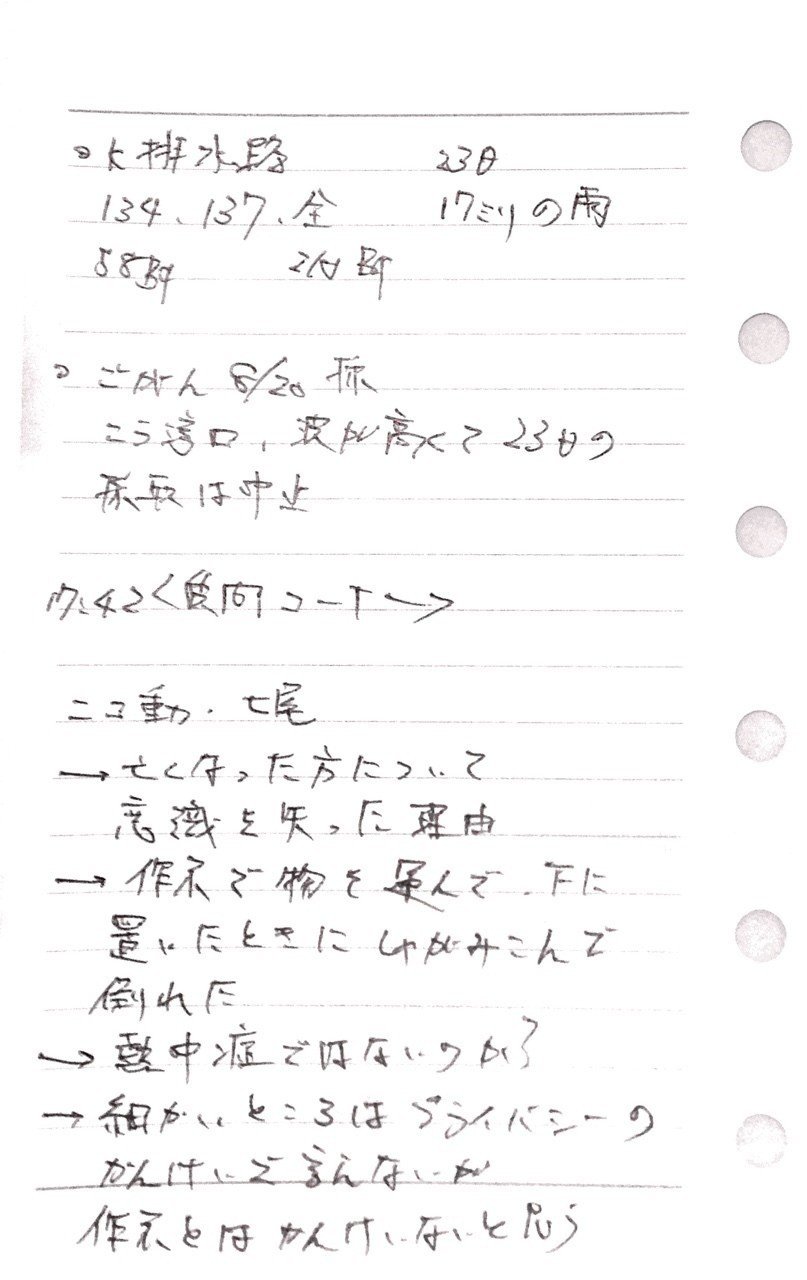 ○ K排水路 23日
134、137、全 17ミリの雨
58Bq 2位 Bq
○ ごがん 8/20 採
こう湾口、波が高くて23日の
採取は中止
17:42 <質問コーナー>
ニコ動・七尾
→ 亡くなった方について
意識を失った理由
→ 作業で物を運んで、下に
置いたときにしゃがみこんで
倒れた
→ 熱中症ではないのか?
→ 細かいところはプライバシーの
かんけいで言えないが
作業とはかんけいないと思う